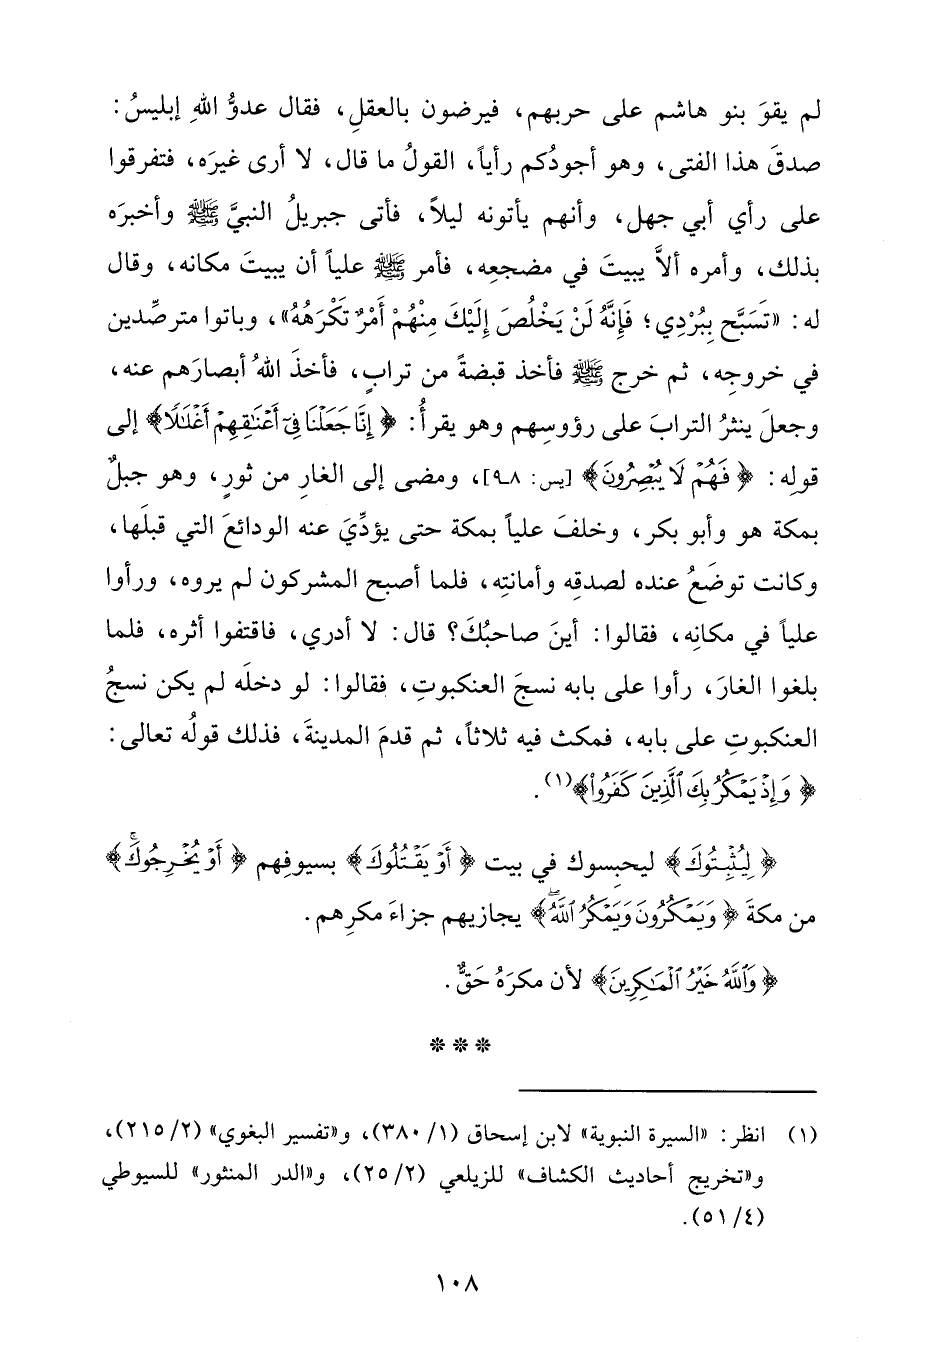 لم يقوَ بنو هاشم على حربهم، فيرضون بالعقلِ، فقال عدوُّ اللهِ إبليسُ:
صدقَ هذا الفتى، وهو أجودُكم رأياً، القولُ ما قال، لا أرى غيرَه، فتفرقوا
على رأي أبي جهل، وأنهم يأتونه ليلاً، فأتى جبريلُ النبيَّ ﷺ وأخبرَه
بذلك، وأمره ألاَّ يبيتَ في مضجعِه، فأمر ﷺ علياً أن يبيتَ مكانه، وقال
له: «تَسَبَّح بِبُرْدِي؛ فَإِنَّهُ لَنْ يَخْلُصَ إِلَيْكَ مِنْهُمْ أَمْرٌ تَكْرَهُهُ»، وباتوا مترصِّدين
في خروجِه، ثم خرج ﷺ فأخذ قبضةً من ترابٍ، فأخذَ اللهُ أبصارَهم عنه،
وجعلَ ينثرُ الترابَ على رؤوسِهم وهو يقرأُ: ﴿إِنَّا جَعَلْنَا فِىٓ أَعْنَٰقِهِمْ أَغْلَٰلًا﴾ إلى
قولِه: ﴿فَهُمْ لَا يُبْصِرُونَ﴾ [يس: ٨ـ٩]، ومضى إلى الغارِ من ثورٍ، وهو جبلٌ
بمكة هو وأبو بكر، وخلفَ علياً بمكة حتى يؤدِّيَ عنه الودائعَ التي قبلَها،
وكانت توضَعُ عنده لصدقِه وأمانتِه، فلما أصبح المشركون لم يروه، ورأوا
علياً في مكانِه، فقالوا: أينَ صاحبُكَ؟ قال: لا أدري، فاقتفوا أثره، فلما
بلغوا الغارَ، رأوا على بابه نسجَ العنكبوتِ، فقالوا: لو دخلَه لم يكن نسجُ
العنكبوتِ على بابه، فمكث فيه ثلاثاً، ثم قدمَ المدينةَ، فذلك قولُه تعالى:
﴿وَإِذْ يَمْكُرُ بِكَ ٱلَّذِينَ كَفَرُوا۟﴾(١).
﴿لِيُثْبِتُوكَ﴾ ليحبِسوك في بيت ﴿أَوْ يَقْتُلُوكَ﴾ بسيوفِهم ﴿أَوْ يُخْرِجُوكَۚ﴾
من مكةَ ﴿وَيَمْكُرُونَ وَيَمْكُرُ ٱللَّهُۖ﴾ يجازيهم جزاءَ مكرِهم.
﴿وَٱللَّهُ خَيْرُ ٱلْمَٰكِرِينَ﴾ لأن مكرَهُ حَقٌّ.
* * *
(١) انظر: «السيرة النبوية» لابن إسحاق (١/ ٣٨٠)، و«تفسير البغوي» (٢/ ٢١٥)،
و«تخريج أحاديث الكشاف» للزيلعي (٢/ ٢٥)، و«الدر المنثور» للسيوطي
(٤/ ٥١).
١٠٨